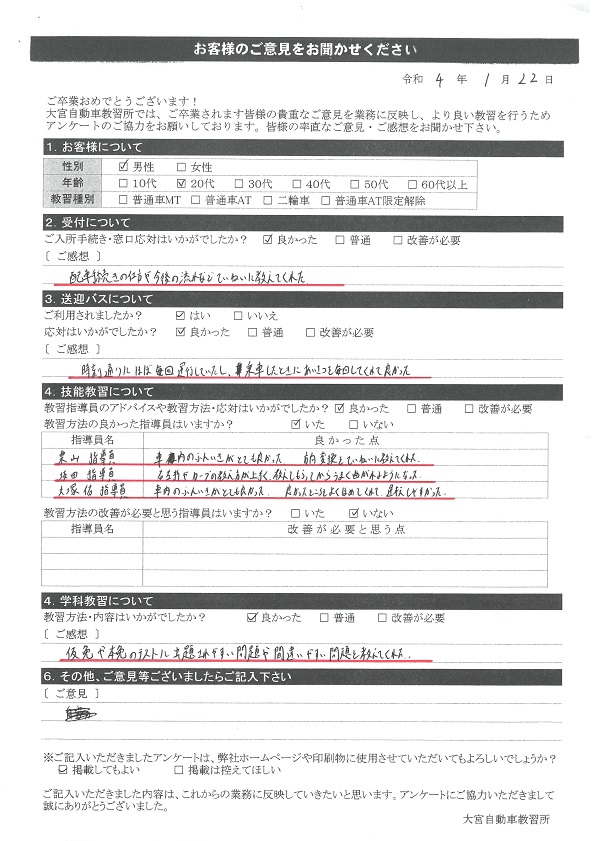 お客様のご意見をお聞かせください
令和 4 年 1 月 22 日
ご卒業おめでとうございます！
大宮自動車教習所では、ご卒業されます皆様の貴重なご意見を業務に反映し、より良い教習を行うため
アンケートのご協力をお願いしております。皆様の率直なご意見・ご感想をお聞かせ下さい。
1. お客様について
性別 ☑ 男性 □ 女性
年齢 □ 10代 ☑ 20代 □ 30代 □ 40代 □ 50代 □ 60代以上
教習種別 □ 普通車MT □ 普通車AT □ 二輪車 □ 普通車AT限定解除
2. 受付について
ご入所手続き・窓口応対はいかがでしたか？ ☑ 良かった □ 普通 □ 改善が必要
〔 ご感想 〕
配車手続きの仕方や今後の流れなどていねいに教えてくれた
3. 送迎バスについて
ご利用されましたか？ ☑ はい □ いいえ
応対はいかがでしたか？ ☑ 良かった □ 普通 □ 改善が必要
〔 ご感想 〕
時刻通りにほぼ毎回運行していたし、乗車したときにあいさつを毎回してくれて良かった
4. 技能教習について
教習指導員のアドバイスや教習方法・応対はいかがでしたか？ ☑ 良かった □ 普通 □ 改善が必要
教習方法の良かった指導員はいますか？ ☑ いた □ いない
指導員名 良かった点
栗山 指導員 車内のふんいきがとても良かった 方向変換をていねいに教えてくれた
指導員 右左折やカーブの教え方が上手く、教えてもらってからうまく曲がれるようになった
大塚佑 指導員 車内のふんいきがとても良かった。良かったところをよくほめてくれて、運転しやすかった
教習方法の改善が必要と思う指導員はいますか？ □ いた ☑ いない
指導員名 改善が必要と思う点
4. 学科教習について
教習方法・内容はいかがでしたか？ ☑ 良かった □ 普通 □ 改善が必要
〔 ご感想 〕
仮免や本免のテストに出題されやすい問題や間違いやすい問題を教えてくれた.
6. その他、ご意見等ございましたらご記入下さい
〔 ご意見 〕
※ご記入いただきましたアンケートは、弊社ホームページや印刷物に使用させていただいてもよろしいでしょうか？
☑ 掲載してもよい □ 掲載は控えてほしい
ご記入いただきました内容は、これからの業務に反映していきたいと思います。アンケートにご協力いただきまして
誠にありがとうございました。
大宮自動車教習所